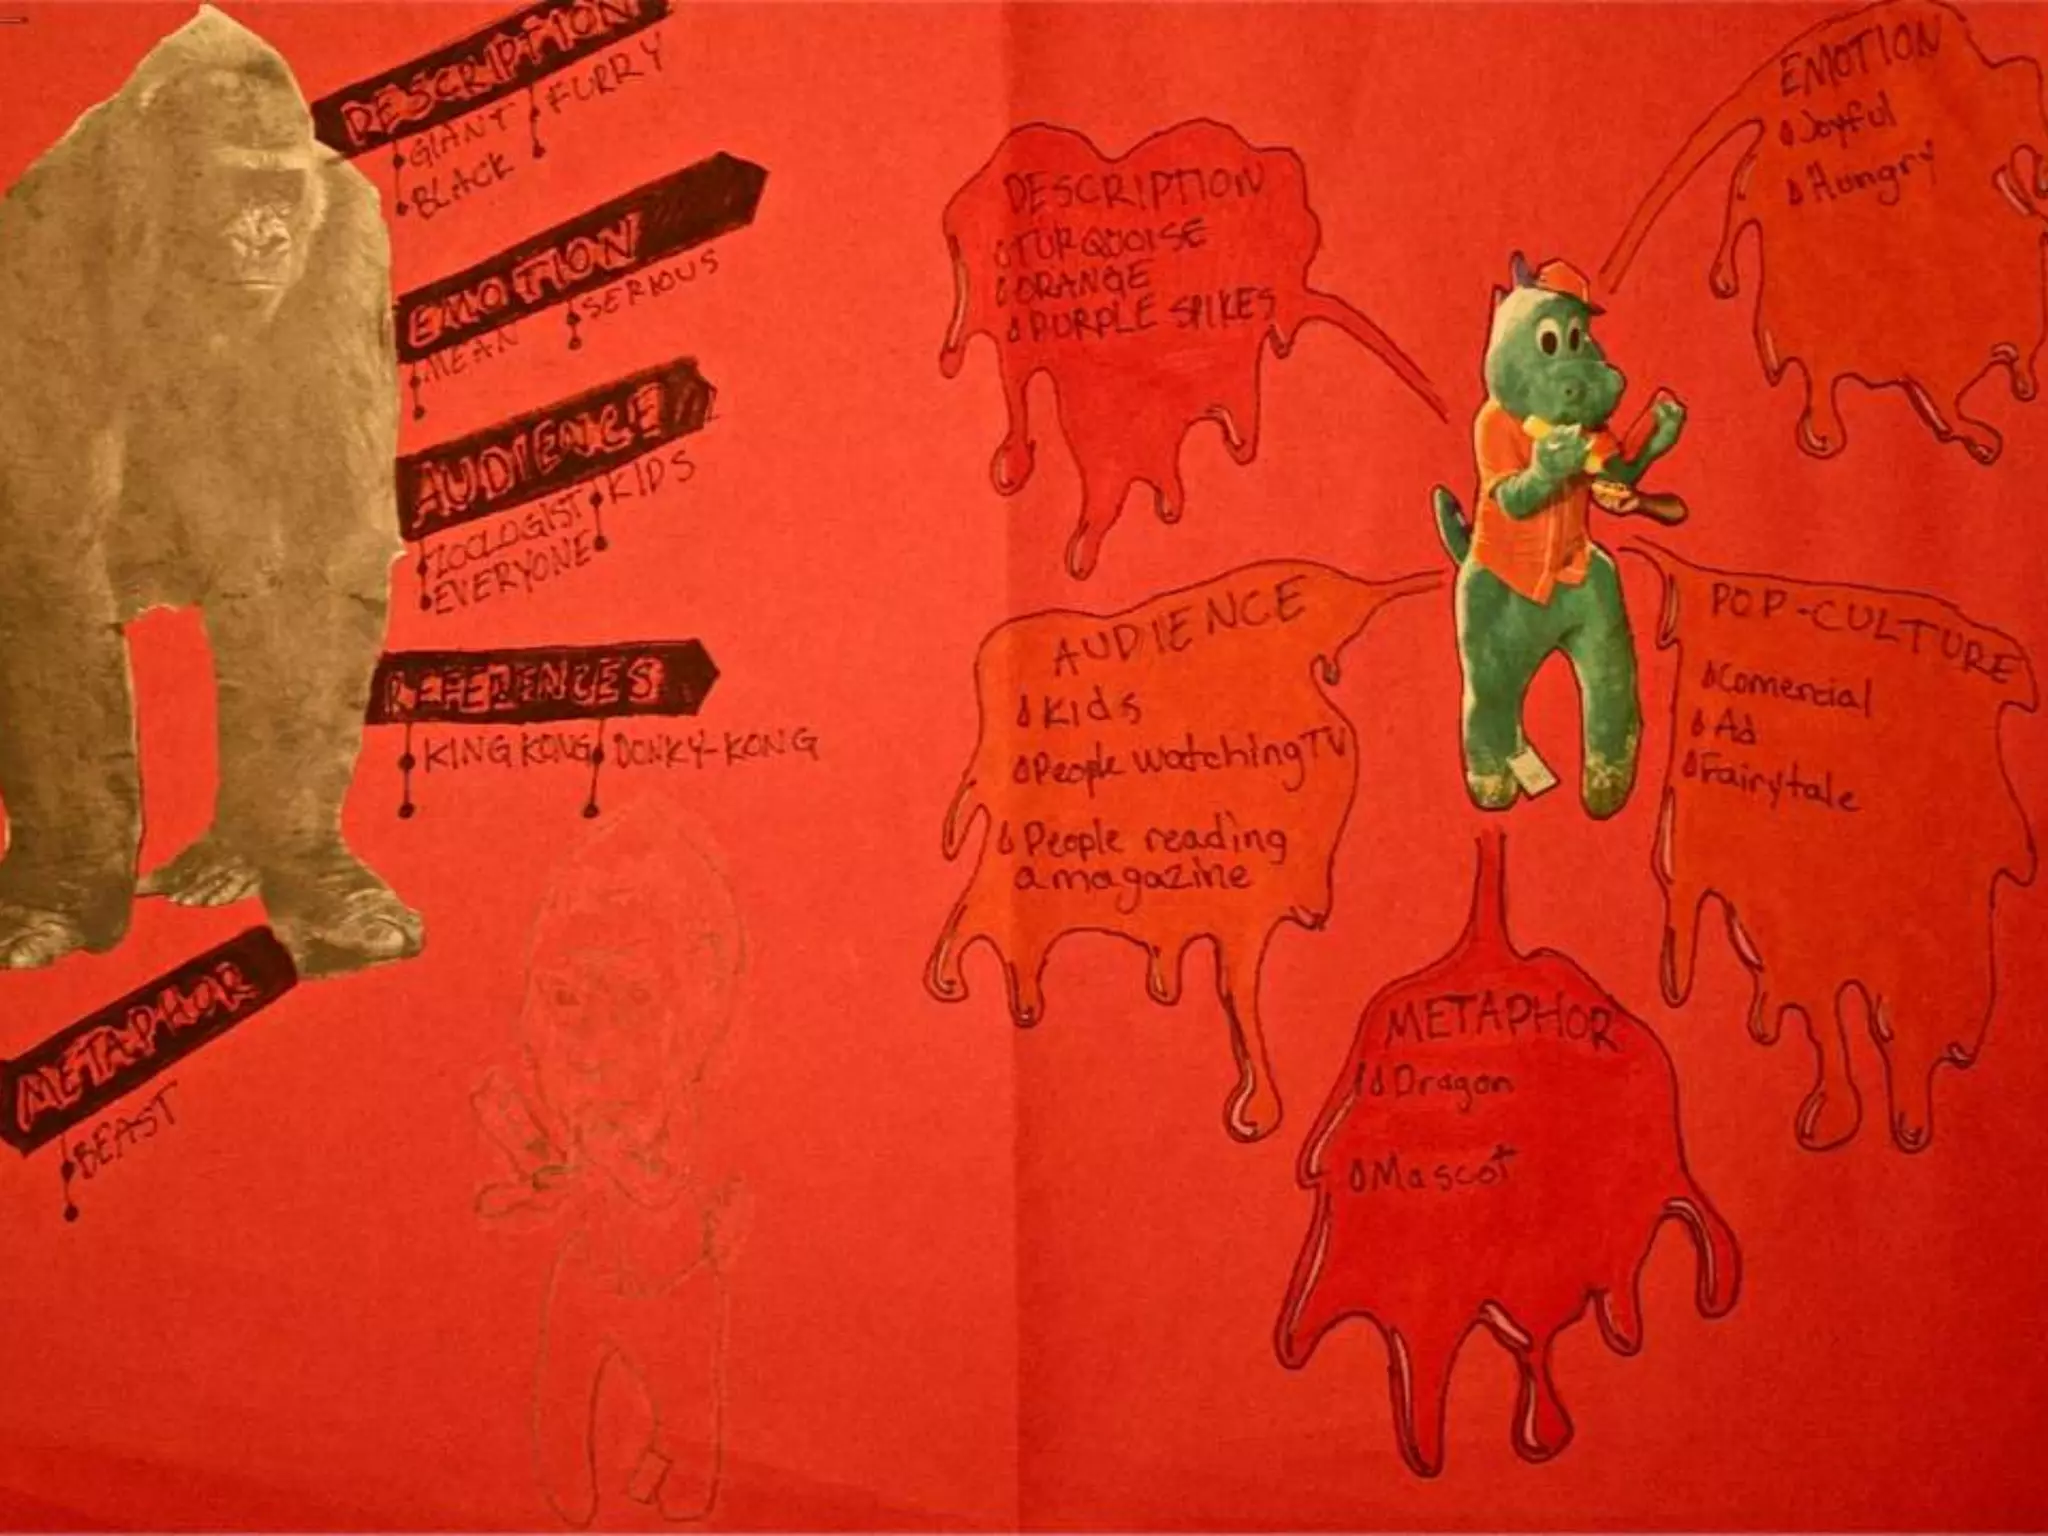 DESCRIPTION
GIANT
FURRY
BLACK
EMOTION
MEAN
SERIOUS
AUDIENCE
ZOOLOGIST
KIDS
EVERYONE
REFERENCES
KING KONG
DONKY-KONG
METAPHOR
BEAST
DESCRIPTION
TURQUOISE
ORANGE
PURPLE SPIKES
EMOTION
Joyful
Hungry
AUDIENCE
Kids
People watching TV
People reading
a magazine
POP-CULTURE
Comercial
Ad
Fairytale
METAPHOR
Dragon
Mascot